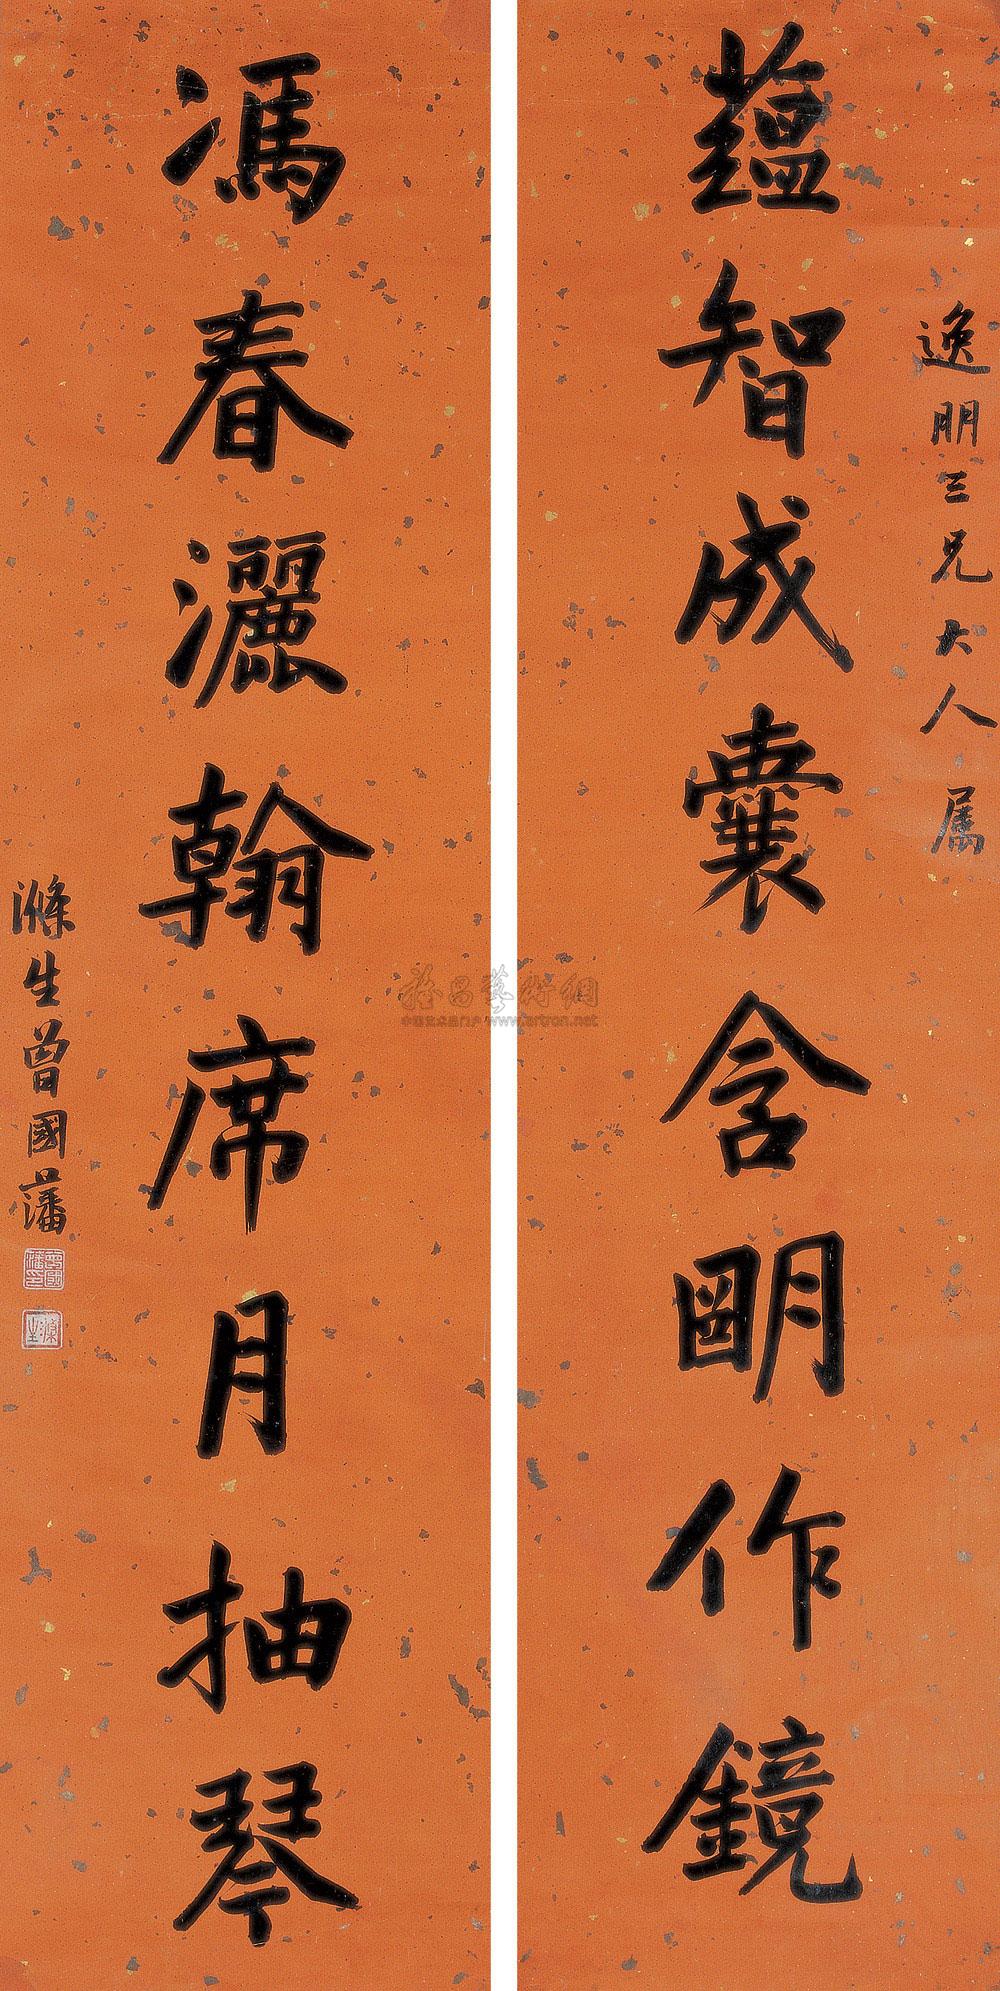 逸朋三兄大人属
蕴智成囊含明作鏡
馮春灑翰席月抽琴
滌生曾國藩
曾國藩印
滌生
www.artron.net